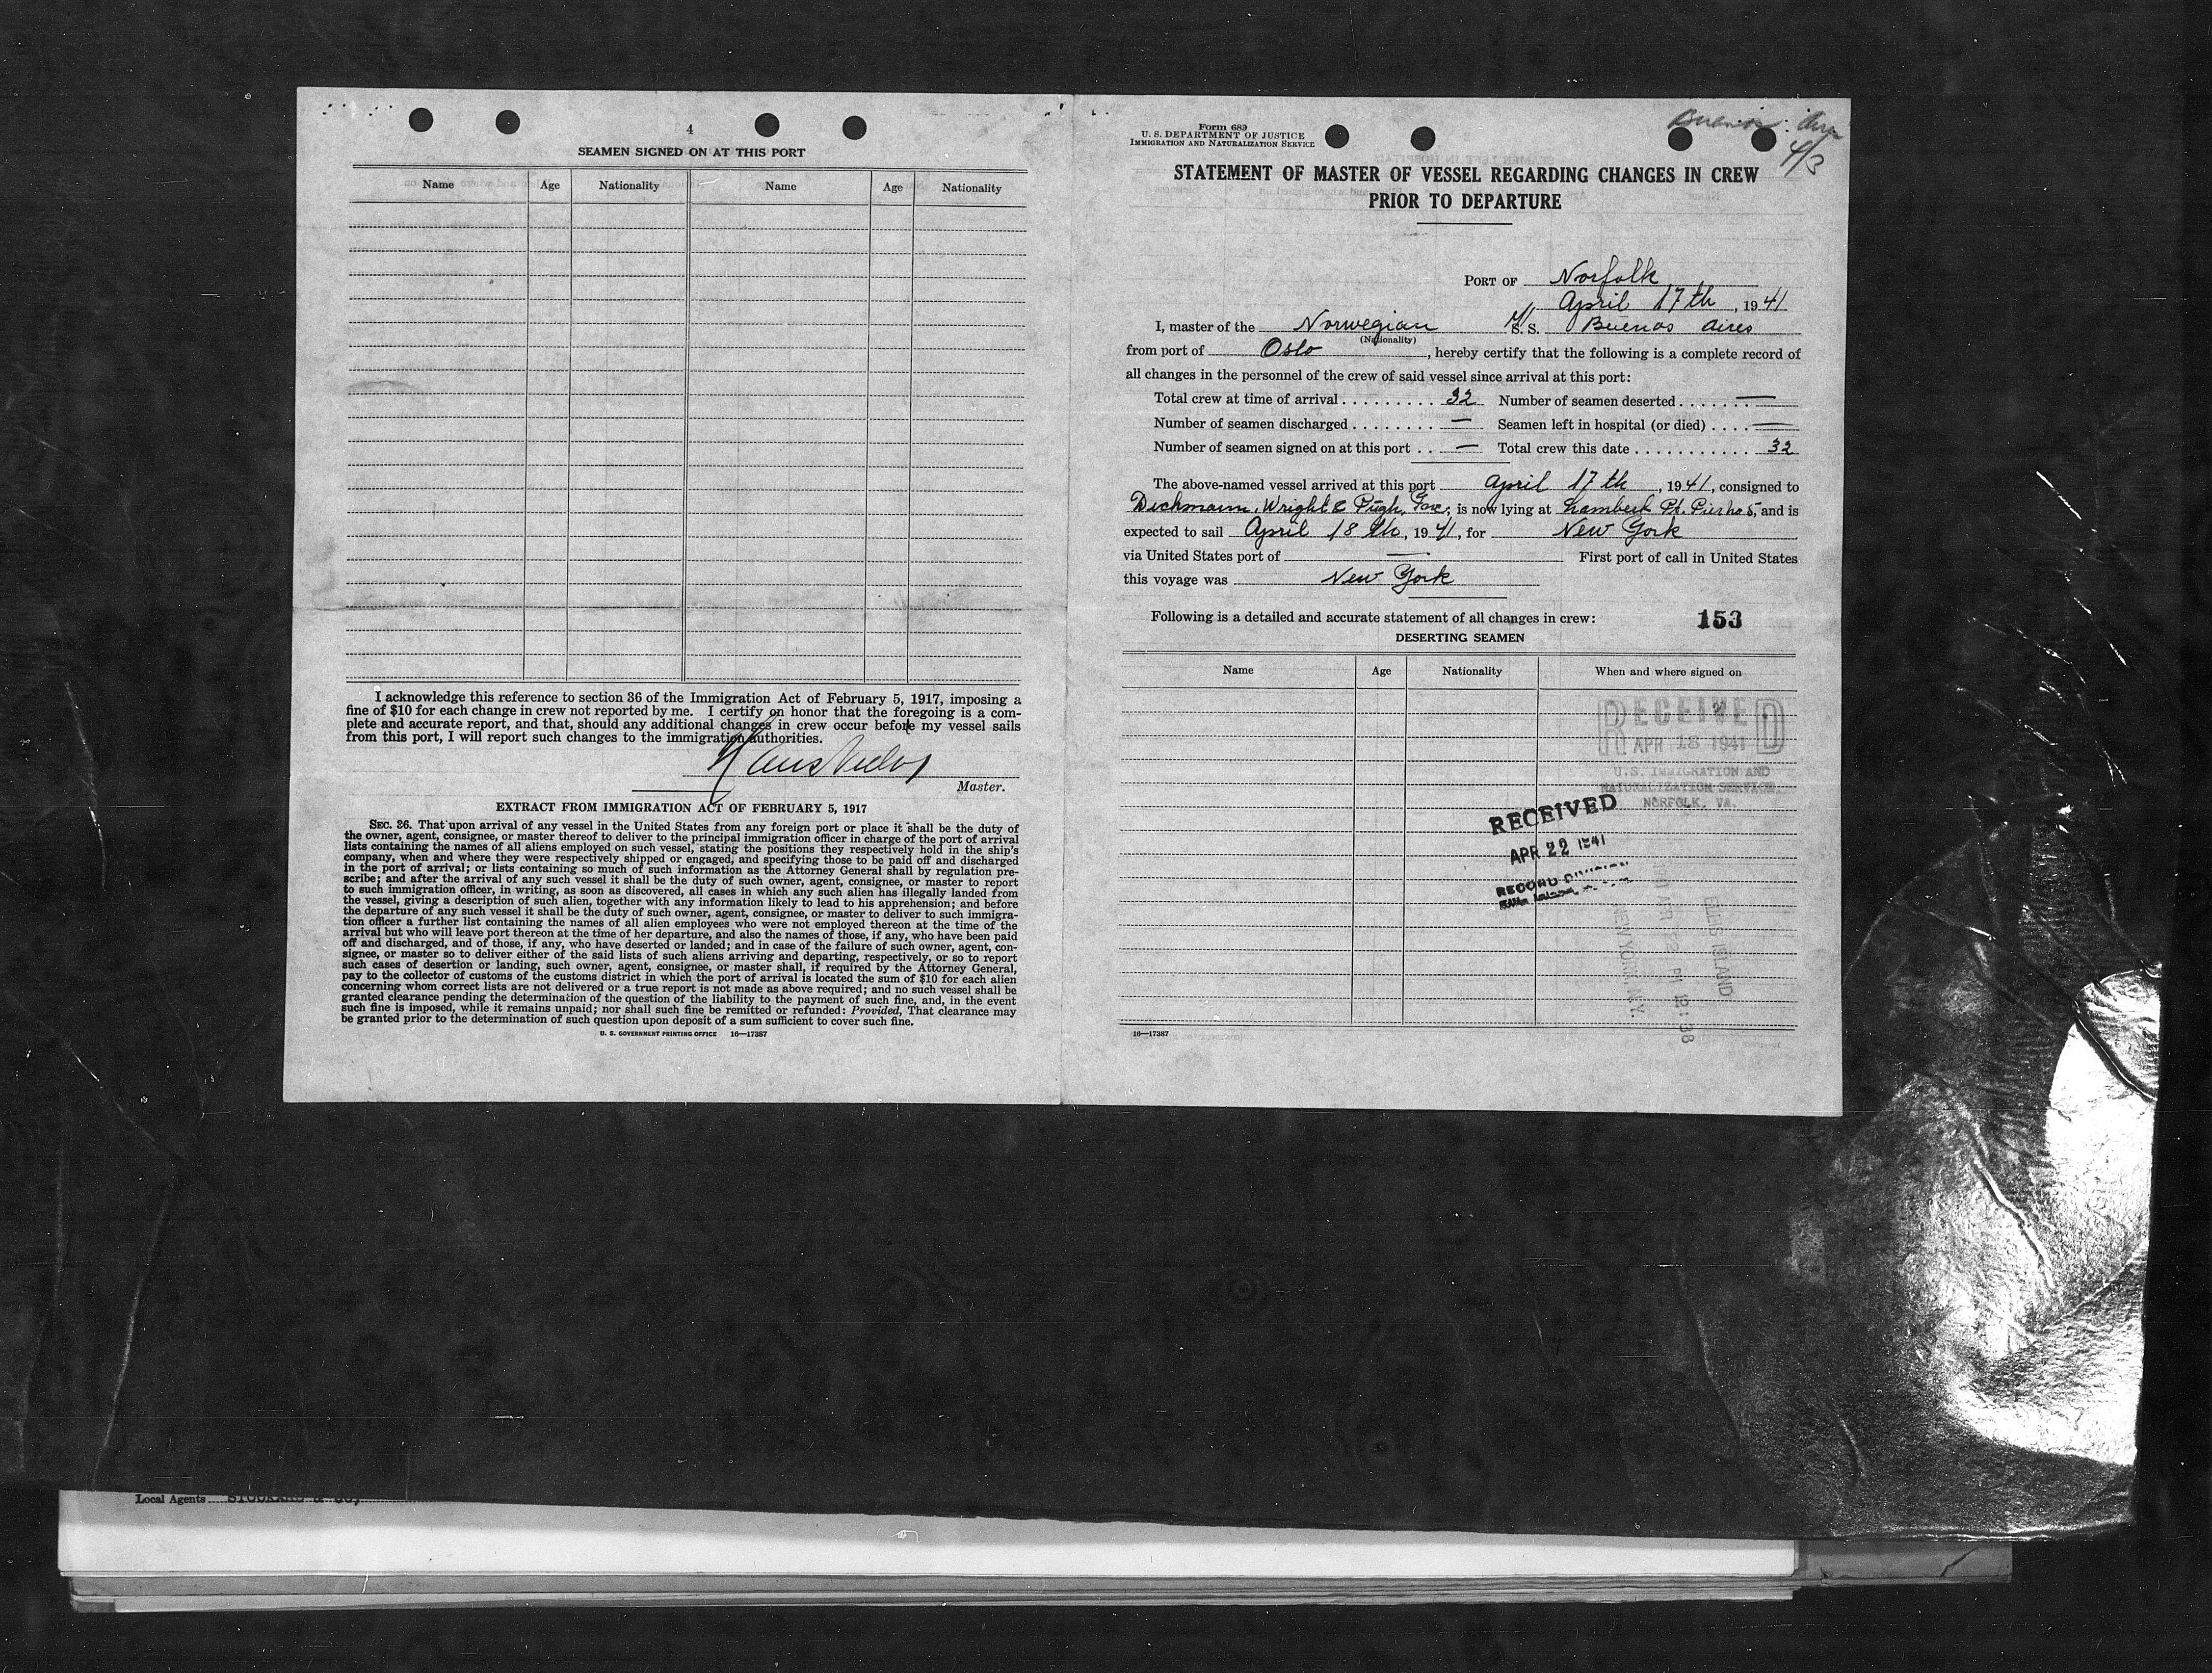 4
SEAMEN SIGNED ON AT THIS PORT
Name Age Nationality Name Age Nationality
I acknowledge this reference to section 36 of the Immigration Act of February 5, 1917, imposing a
fine of $10 for each change in crew not reported by me. I certify on honor that the foregoing is a com-
plete and accurate report, and that, should any additional changes in crew occur before my vessel sails
from this port, I will report such changes to the immigration authorities.
Master.
EXTRACT FROM IMMIGRATION ACT OF FEBRUARY 5, 1917
SEC. 36. That upon arrival of any vessel in the United States from any foreign port or place it shall be the duty of
the owner, agent, consignee, or master thereof to deliver to the principal immigration officer in charge of the port of arrival
lists containing the names of all aliens employed on such vessel, stating the positions they respectively hold in the ship's
company, when and where they were respectively shipped or engaged, and specifying those to be paid off and discharged
in the port of arrival; or lists containing so much of such information as the Attorney General shall by regulation pre-
scribe; and after the arrival of any such vessel it shall be the duty of such owner, agent, consignee, or master to report
to such immigration officer, in writing, as soon as discovered, all cases in which any such alien has illegally landed from
the vessel, giving a description of such alien, together with any information likely to lead to his apprehension; and before
the departure of any such vessel it shall be the duty of such owner, agent, consignee, or master to deliver to such immigra-
tion officer a further list containing the names of all alien employees who were not employed thereon at the time of the
arrival but who will leave port thereon at the time of her departure, and also the names of those, if any, who have been paid
off and discharged, and of those, if any, who have deserted or landed; and in case of the failure of such owner, agent, con-
signee, or master so to deliver either of the said lists of such aliens arriving and departing, respectively, or so to report
such cases of desertion or landing, such owner, agent, consignee, or master shall, if required by the Attorney General,
pay to the collector of customs of the customs district in which the port of arrival is located the sum of $10 for each alien
concerning whom correct lists are not delivered or a true report is not made as above required; and no such vessel shall be
granted clearance pending the determination of the question of the liability to the payment of such fine, and, in the event
such fine is imposed, while it remains unpaid; nor shall such fine be remitted or refunded: Provided, That clearance may
be granted prior to the determination of such question upon deposit of a sum sufficient to cover such fine.
U. S. GOVERNMENT PRINTING OFFICE 16—17387
Form 689
U. S. DEPARTMENT OF JUSTICE
IMMIGRATION AND NATURALIZATION SERVICE
4/3
STATEMENT OF MASTER OF VESSEL REGARDING CHANGES IN CREW
PRIOR TO DEPARTURE
PORT OF Norfolk
April 17th, 1941
I, master of the Norwegian M/S. S. Buenos Aires
(Nationality)
from port of Oslo, hereby certify that the following is a complete record of
all changes in the personnel of the crew of said vessel since arrival at this port:
Total crew at time of arrival . . . . . . . . . 32 Number of seamen deserted . . . . . . . —
Number of seamen discharged . . . . . . . . — Seamen left in hospital (or died) . . . . —
Number of seamen signed on at this port . . — Total crew this date . . . . . . . . . . . 32
The above-named vessel arrived at this port April 17th, 1941, consigned to
Dichmann, Wright & Pugh, Inc, is now lying at Lambert Pt. Pier no 5, and is
expected to sail April 18th, 1941, for New York
via United States port of — First port of call in United States
this voyage was New York
Following is a detailed and accurate statement of all changes in crew: 153
DESERTING SEAMEN
Name Age Nationality When and where signed on
RECEIVED
APR 18 1941
U.S. IMMIGRATION AND
NATURALIZATION SERVICE
NORFOLK, VA.
RECEIVED
APR 22 1941
RECORD DIVISION
ELLIS ISLAND
NEW YORK, N.Y.
16—17387
Local Agents